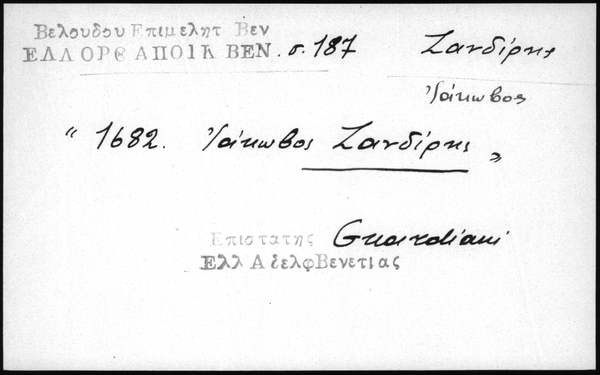 Βελουδου Επιμελητ Βεν
ΕΛΛ ΟΡΘ ΑΠΟΙΚ ΒΕΝ. σ. 187 Ζανδίρης
Ἰάκωβος
"1682. Ἰάκωβος Ζανδίρης"
Επιστατης Guardiani
Ελλ Αδελφ Βενετιας